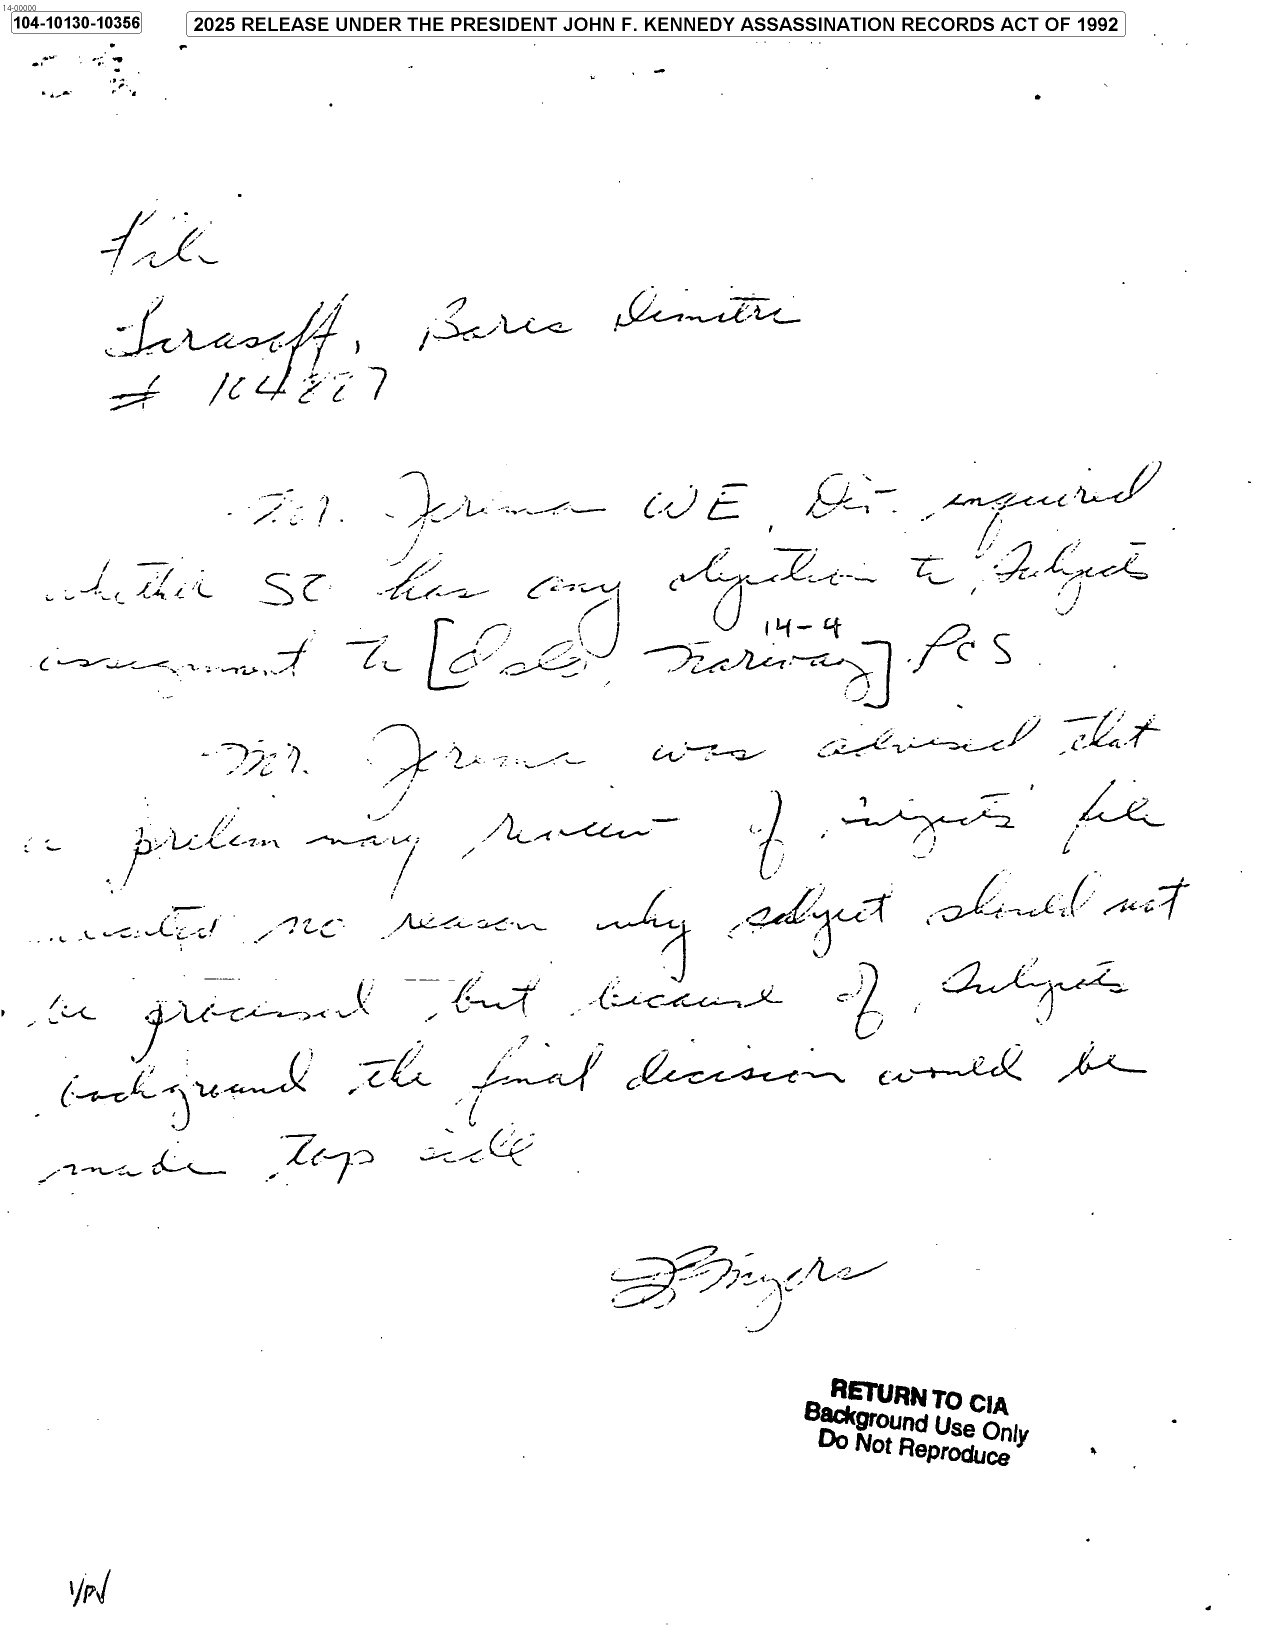 14-00000
104-10130-10356
2025 RELEASE UNDER THE PRESIDENT JOHN F. KENNEDY ASSASSINATION RECORDS ACT OF 1992
File
Tarasoff, Boris Dimitri
#
Mr. WE Div. inquired
whether has any objection to Subject's
14-4
assignment to [Oslo, Norway] PCS.
Mr. was advised that
a preliminary review of subject's file
no reason why subject should not
be processed but because of Subject's
background the final decision would be
made top side
Myers
RETURN TO CIA
Background Use Only
Do Not Reproduce